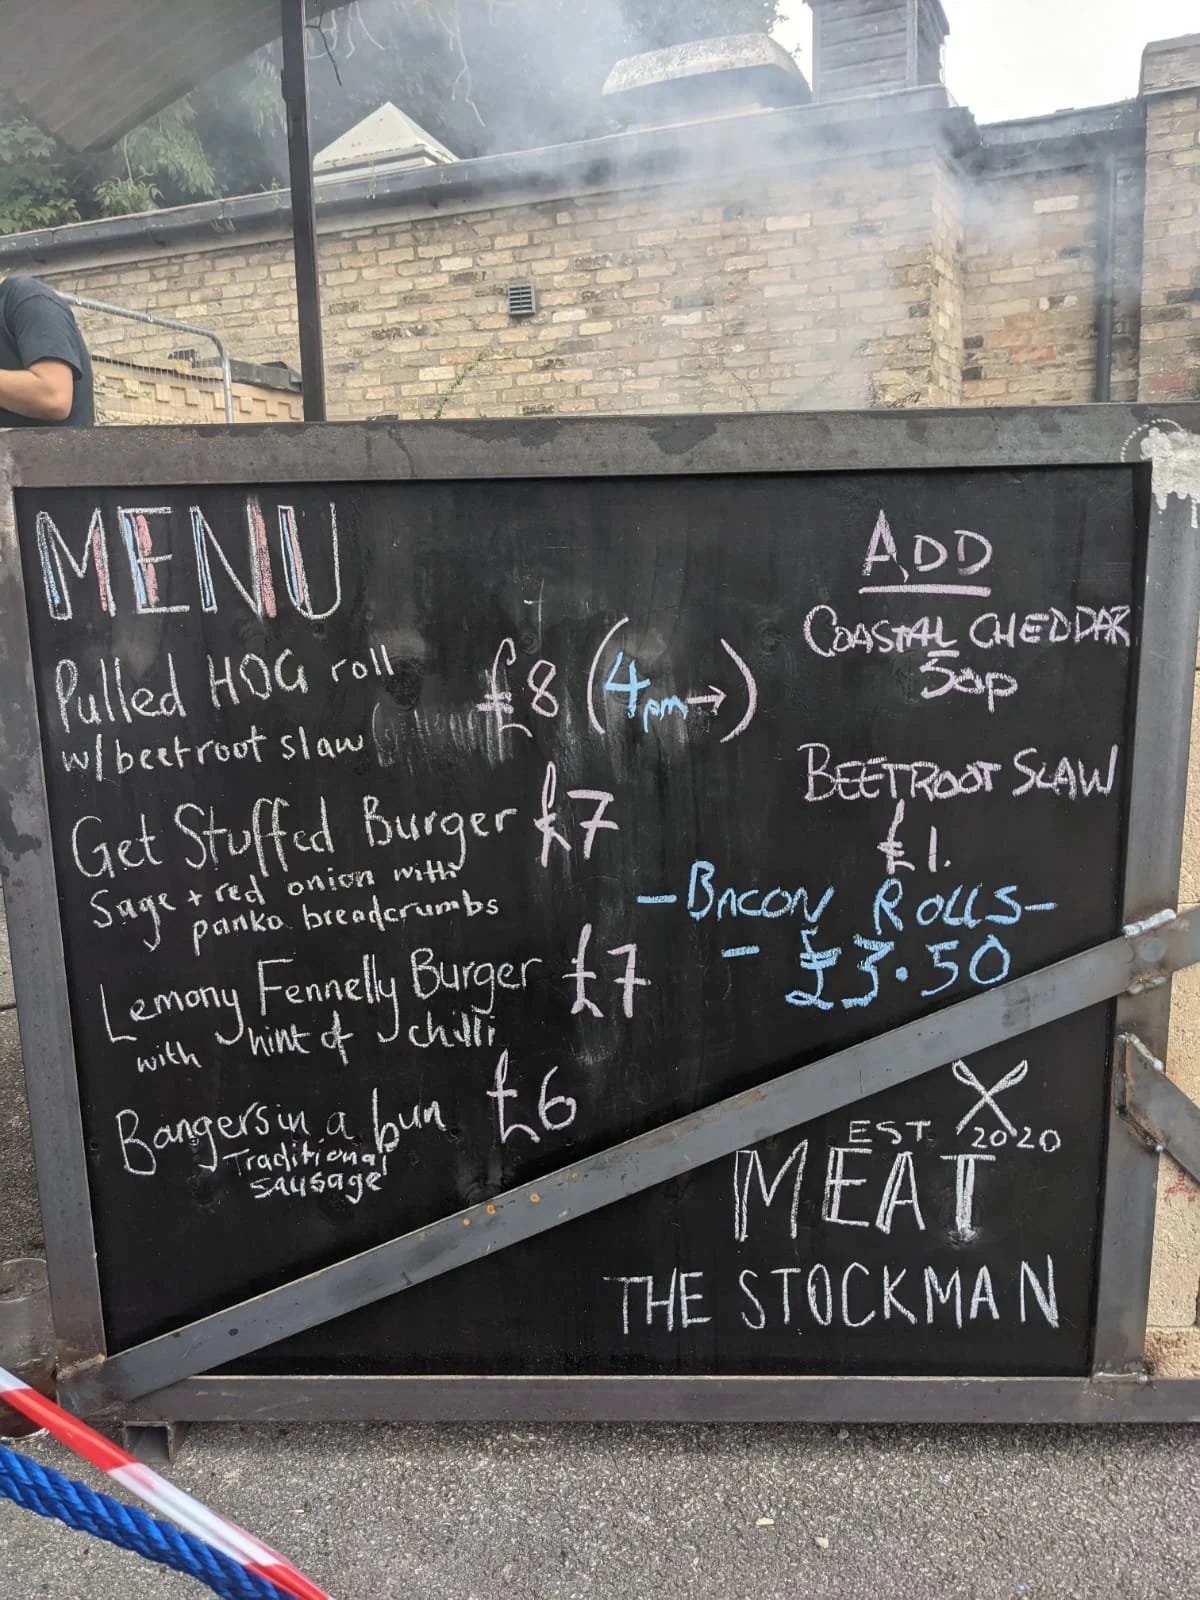 MENU
Pulled HOG roll £8 (4pm→)
w/beetroot slaw
Get Stuffed Burger £7
Sage + red onion with
panko breadcrumbs
Lemony Fennelly Burger £7
with hint of chilli
Bangers in a bun £6
Traditional
sausage
ADD
COASTAL CHEDDAR
50p
BEETROOT SLAW
£1.
-BACON ROLLS-
- £3.50
EST 2020
MEAT
THE STOCKMAN